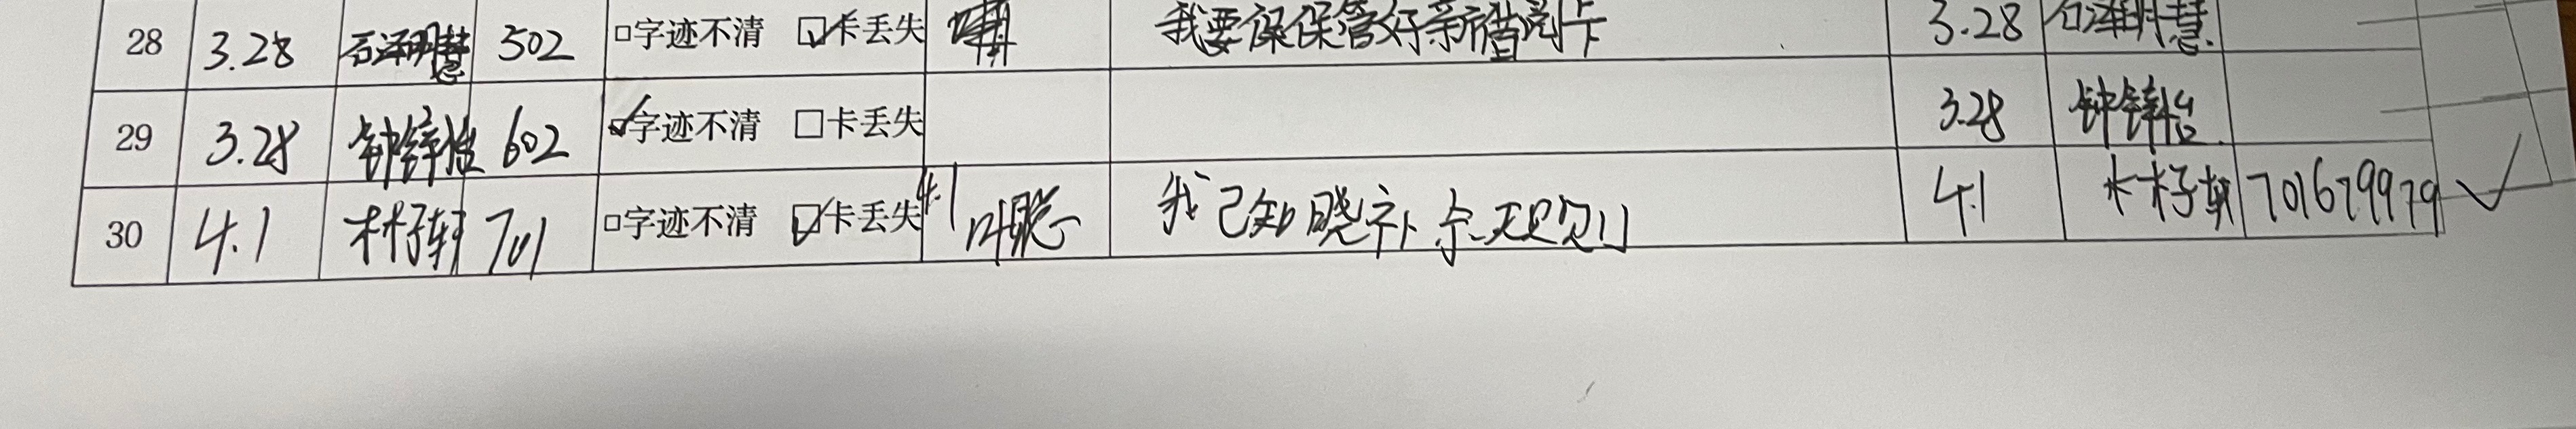 28 3.28 石泽明慧 502 □字迹不清 ☑卡丢失 我要保保管好新借阅卡 3.28 石泽明慧
29 3.28 钟锌怡 602 ☑字迹不清 □卡丢失 3.28 钟锌怡
30 4.1 林子轩 701 □字迹不清 ☑卡丢失 4.1 叶聪 我已知晓补 4.1 林子轩 701679979 ✓